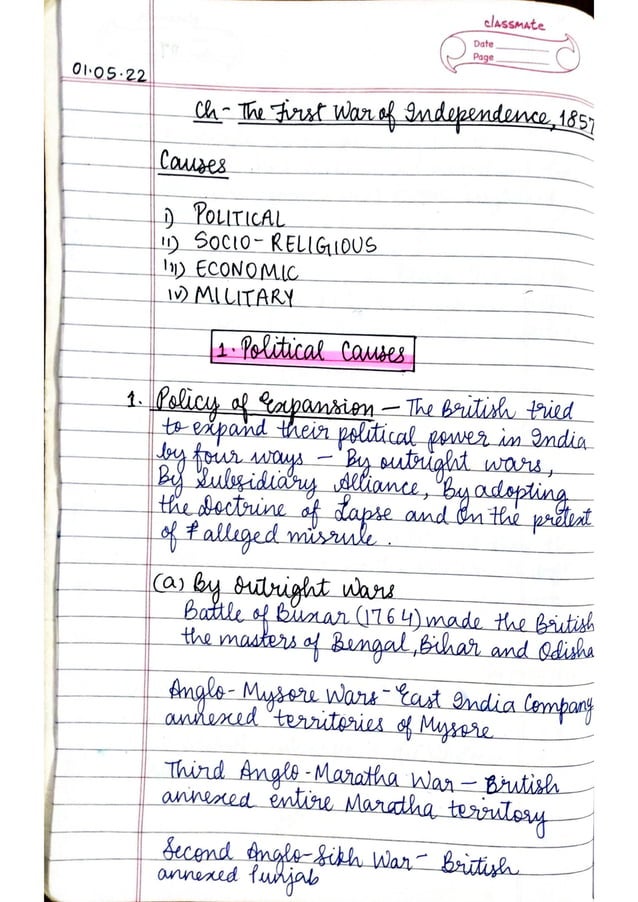 classmate
Date
Page
01.05.22
Ch - The First War of Independence, 1857
Causes
i) POLITICAL
ii) SOCIO - RELIGIOUS
iii) ECONOMIC
iv) MILITARY
1. Political Causes
1. Policy of Expansion - The British tried
to expand their political power in India
by four ways - By outright wars,
By Subsidiary Alliance, By adopting
the Doctrine of Lapse and On the pretext
of alleged misrule.
(a) By Outright Wars
Battle of Buxar (1764) made the British
the masters of Bengal, Bihar and Odisha
Anglo - Mysore Wars - East India Company
annexed territories of Mysore
Third Anglo - Maratha War - British
annexed entire Maratha territory
Second Anglo - Sikh War - British
annexed Punjab